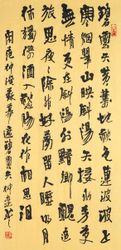 碧雲天黄葉地秋色連波波上
寒烟翠山映斜陽天接水芳草
無情更在斜陽外黯鄉魂追
旅思夜夜除非好夢留人睡明月樓高
休獨倚酒入愁腸化作相思淚
范仲淹蘇幕遮碧雲天